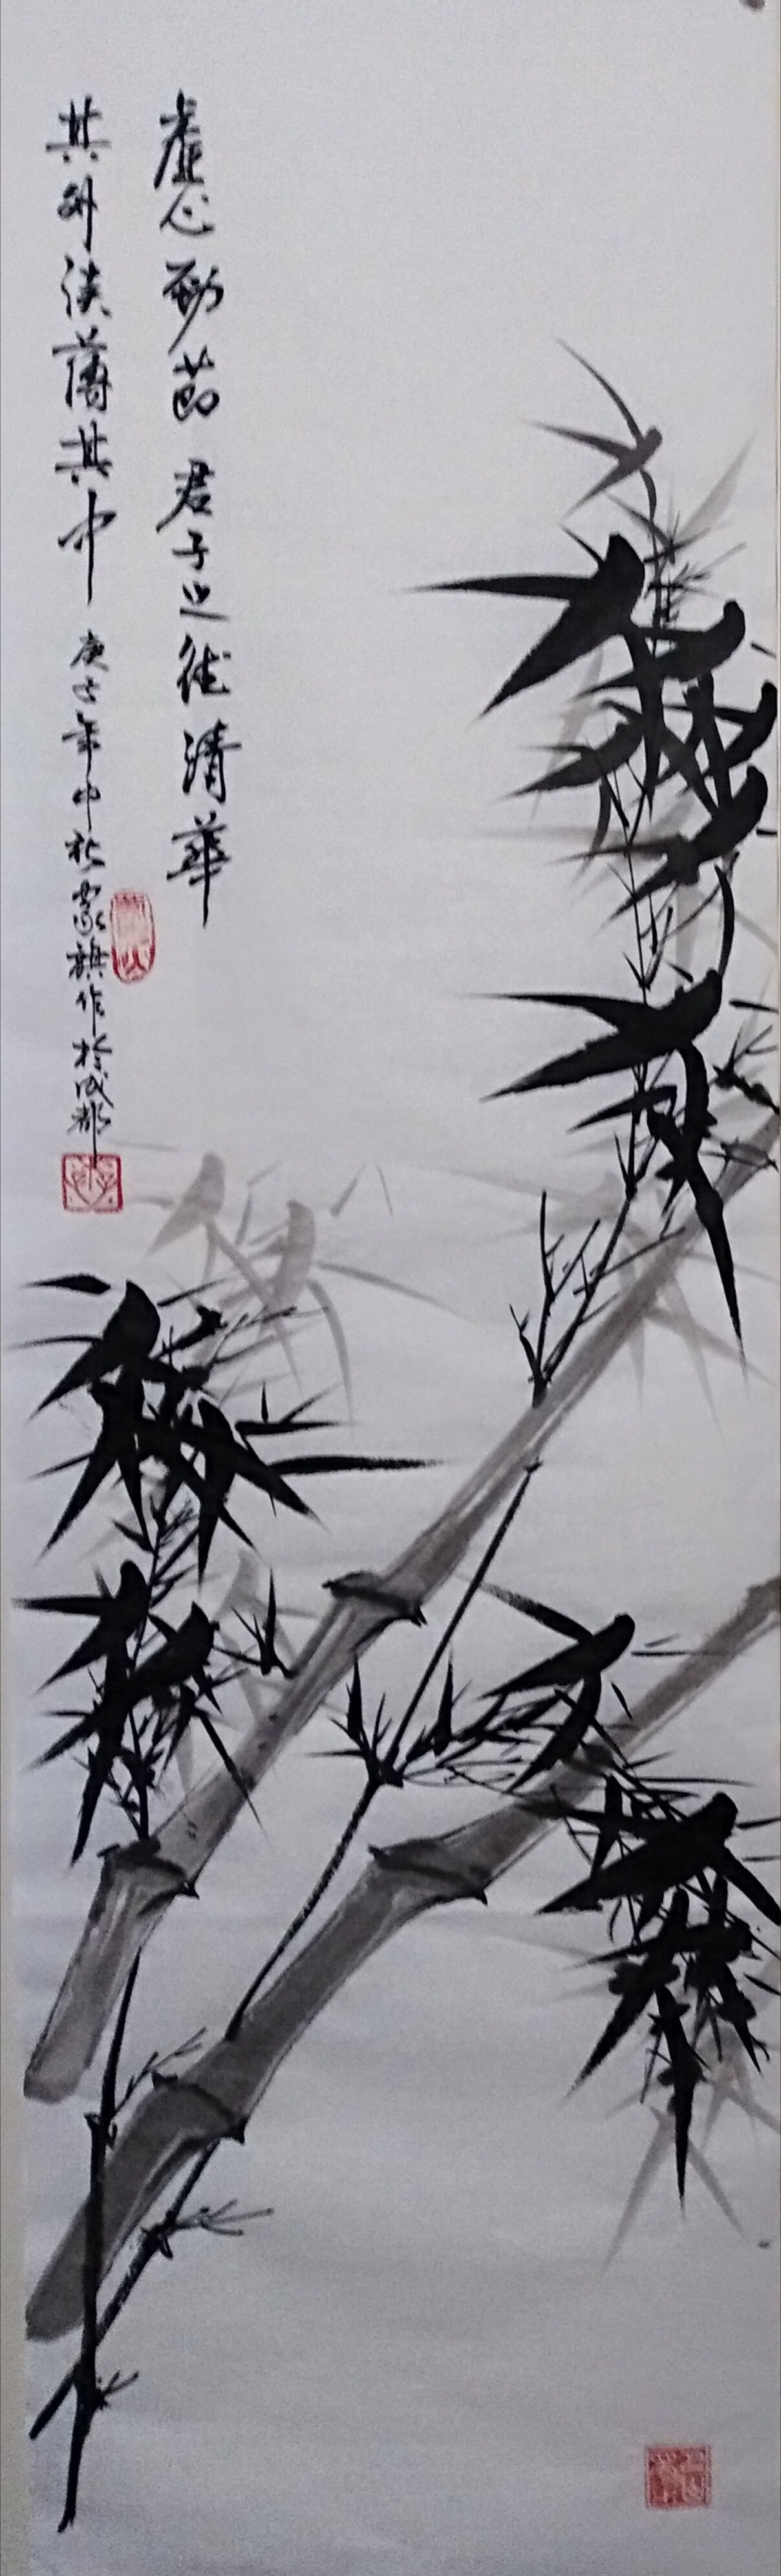 虚心劲節君子之德清華
其外淡薄其中庚子年中秋蒙旗作於成都